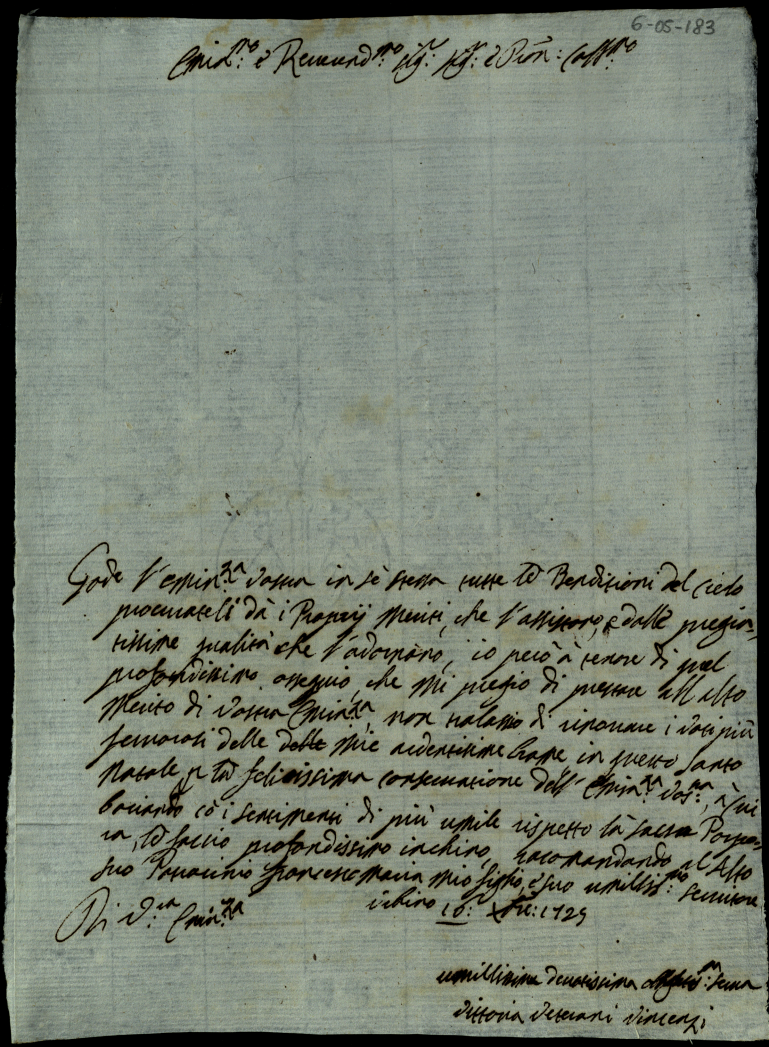 6-05-183
Emin.mo e Reverend.mo Sig.r Sig.r e Pron: Coll.mo
Gode l'Emin.za Vostra in sè stessa tutte le Benditioni del Cielo
procurateli dà i Proprij Meriti, che l'assistono, e dalle pregia-
tissime qualità che l'adornano, io però à tenore di quel
profondissimo ossequio, che mi pregio di prestare all'alto
Merito di Vostra Emin.za, non tralascio di rinovare i voti più
fervorosi delle mie ardentissime brame in questo Santo
Natale, p la felicissima conservatione dell'Emin.za Vos.ra, à cui
baciando cò i sentimenti di più umile rispetto la sacra Porpo-
ra, le faccio profondissimo inchino, racomandando al Alto
suo Patrocinio Francesco Maria mio figlio, e suo umiliss.mo servitore
Di V.ra Emin.za Urbino 10: Xbre: 1729
umilissima devotissima serva
Vittoria Veterani Vincenzi